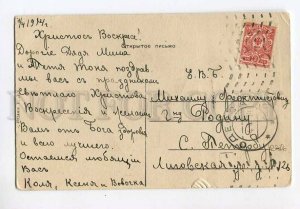 1914 г.
Христосъ Воскресъ!
открытое письмо
Дорогие Дядя Миша
и Тетя Тоня поздрав.
мы васъ съ праздником
свѣтлаго Христова
Воскресенія и желаем
Вам отъ Бога здоровья
и всего лучшего.
Остаемся любящіи
Васъ
Коля, Ксенія и Вовочка
Е.В.Б.
Михаилу
Г-ну Родину
С. Петерб.
Лиговская